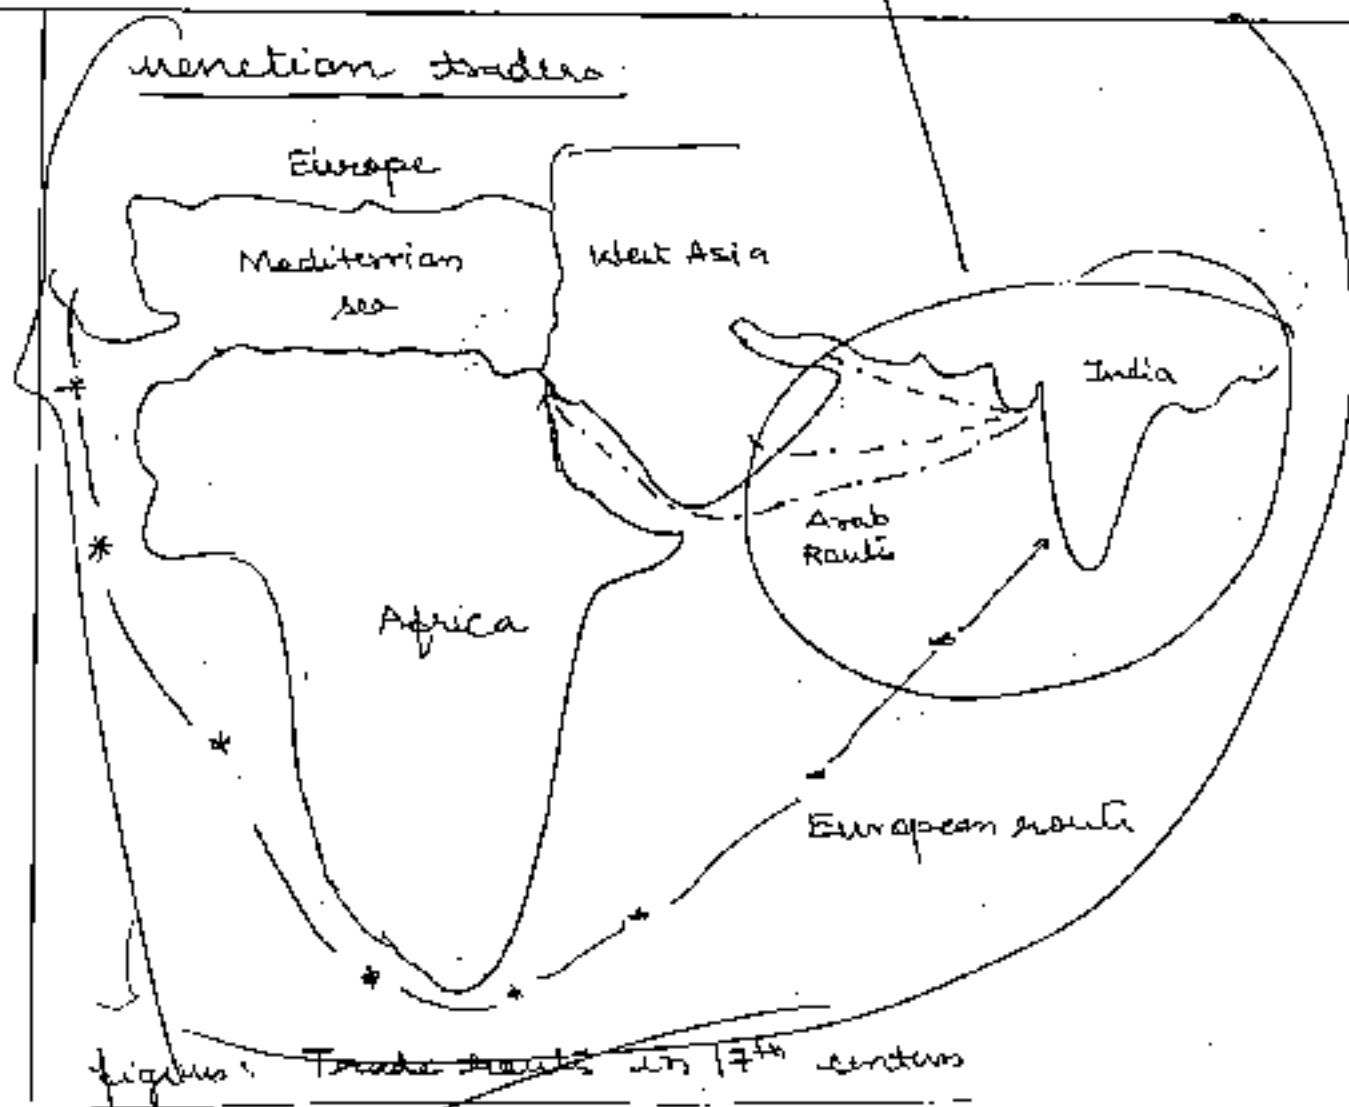 venetian traders
Europe
Mediterrian
sea
West Asia
India
Arab
Route
Africa
European route
figure: Trade routs in 17th century